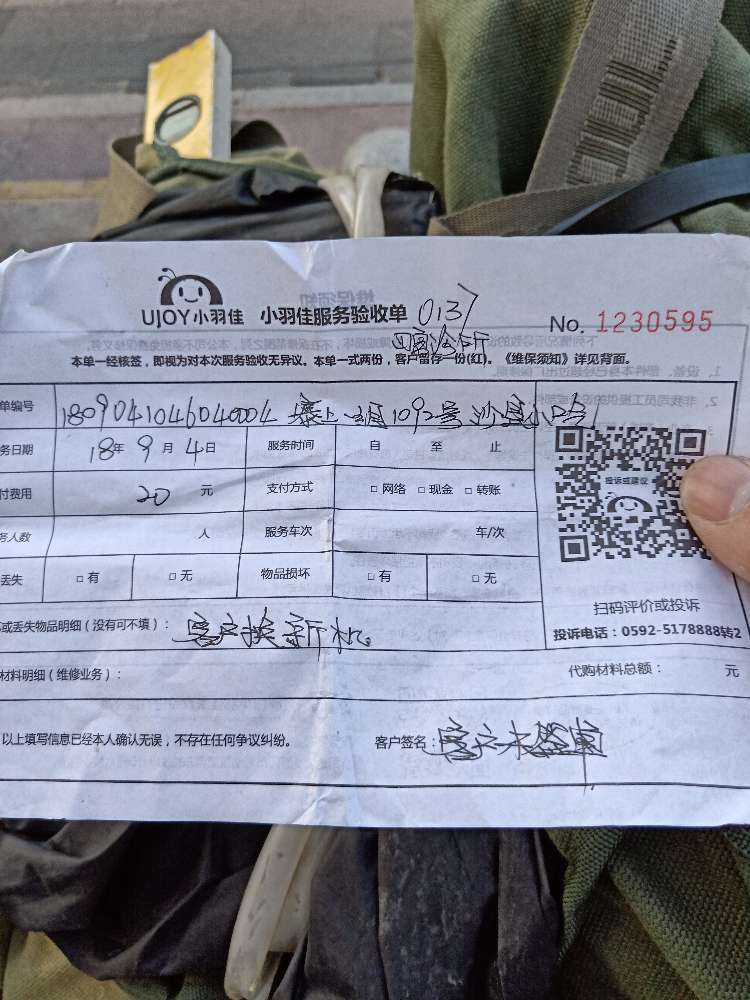 UJOY小羽佳 小羽佳服务验收单 0137
No. 1230595
本单一经核签，即视为对本次服务验收无异议。本单一式两份，客户留存一份(红)。《维保须知》详见背面。
单编号 1092号 沙县小吃
务日期 18年 9月 4日 服务时间 自 至 止
付费用 20 元 支付方式 □ 网络 □ 现金 □ 转账
务人数 人 服务车次 车/次
丢失 □ 有 □ 无 物品损坏 □ 有 □ 无
投诉或建议
扫码评价或投诉
投诉电话：0592-5178888转2
或丢失物品明细（没有可不填）： 客户换新机。
材料明细（维修业务）： 代购材料总额： 元
以上填写信息已经本人确认无误，不存在任何争议纠纷。 客户签名：客户未签单